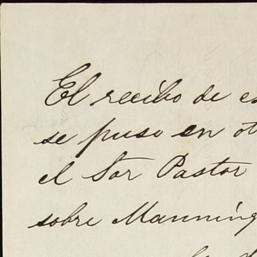 El recibo de es
se puso en ot
el Sor Pastor
sobre Manning